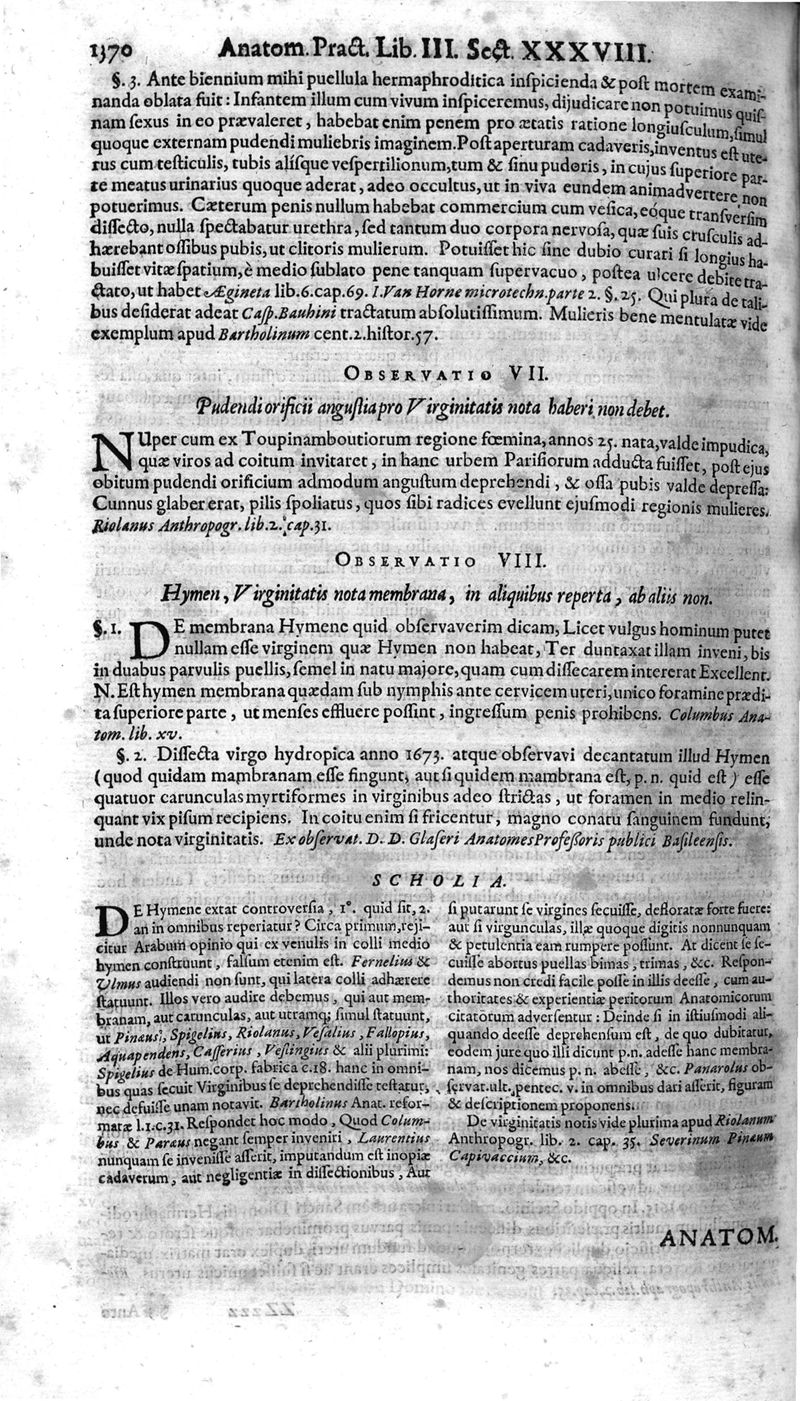 1370 Anatom. Pract. Lib. III. Sect. XXXVIII.
§. 3. Ante biennium mihi puellula hermaphroditica inſpicienda & poſt mortem exami-
nanda oblata fuit: Infantem illum cum vivum inſpiceremus, dijudicare non potuimus quiſ-
nam ſexus in eo prævaleret, habebat enim penem pro ætatis ratione longiuſculum, ſimul
quoque externam pudendi muliebris imaginem. Poſt aperturam cadaveris, inventus eſt ute-
rus cum teſticulis, tubis aliſque veſpertilionum, tum & ſinu pudoris, in cujus ſuperiore par-
te meatus urinarius quoque aderat, adeo occultus, ut in viva eundem animadvertere non
potuerimus. Cæterum penis nullum habebat commercium cum veſica, eóque tranſverſim
diſſecto, nulla ſpectabatur urethra, ſed tantum duo corpora nervoſa, quæ ſuis cruſculis ad-
hærebant oſſibus pubis, ut clitoris mulierum. Potuiſſet hic ſine dubio curari ſi longius ha-
buiſſet vitæ ſpatium, è medio ſublato pene tanquam ſupervacuo, poſtea ulcere debite tra-
ctato, ut habet Ægineta lib. 6. cap. 69. I. Van Horne microtechn. parte 2. §. 25. Qui plura de tali-
bus deſiderat adeat Caſp. Bauhini tractatum abſolutiſſimum. Mulieris bene mentulatæ vide
exemplum apud Bartholinum cent. 2. hiſtor. 57.
OBSERVATIO VII.
Pudendi orificii anguſtia pro Virginitatis nota haberi non debet.
NUper cum ex Toupinamboutiorum regione fœmina, annos 25. nata, valde impudica,
quæ viros ad coitum invitaret, in hanc urbem Pariſiorum adducta fuiſſet, poſt ejus
obitum pudendi orificium admodum anguſtum deprehendi, & oſſa pubis valde depreſſa:
Cunnus glaber erat, pilis ſpoliatus, quos ſibi radices evellunt ejuſmodi regionis mulieres.
Riolanus Anthropogr. lib. 2. cap. 31.
OBSERVATIO VIII.
Hymen, Virginitatis nota membrana, in aliquibus reperta, ab aliis non.
§. 1. DE membrana Hymene quid obſervaverim dicam, Licet vulgus hominum putet
nullam eſſe virginem quæ Hymen non habeat, Ter duntaxat illam inveni, bis
in duabus parvulis puellis, ſemel in natu majore, quam cum diſſecarem intererat Excellent.
N. Eſt hymen membrana quædam ſub nymphis ante cervicem uteri, unico foramine prædi-
ta ſuperiore parte, ut menſes effluere poſſint, ingreſſum penis prohibens. Columbus Ana-
tom. lib. xv.
§. 2. Diſſecta virgo hydropica anno 1673. atque obſervavi decantatum illud Hymen
(quod quidam mambranam eſſe fingunt, aut ſi quidem mambrana eſt, p. n. quid eſt) eſſe
quatuor carunculas myrtiformes in virginibus adeo ſtrictas, ut foramen in medio relin-
quant vix piſum recipiens. In coitu enim ſi fricentur, magno conatu ſanguinem fundunt,
unde nota virginitatis. Ex obſervat. D. D. Glaſeri Anatomes Profeſſoris publici Baſileenſis.
SCHOLIA.
DE Hymene extat controverſia, 1°. quid ſit, 2.
an in omnibus reperiatur? Circa primum, reji-
citur Arabum opinio qui ex venulis in colli medio
hymen conſtruunt, falſum etenim eſt. Fernelius &
Ulmus audiendi non ſunt, qui latera colli adhærere
ſtatuunt. Illos vero audire debemus, qui aut mem-
branam, aut carunculas, aut utramq; ſimul ſtatuunt,
ut Pinæus, Spigelius, Riolanus, Veſalius, Fallopius,
Aquapendens, Caſſerius, Veſlingius & alii plurimi:
Spigelius de Hum. corp. fabrica c. 18. hanc in omni-
bus quas ſecuit Virginibus ſe deprehendiſſe teſtatur,
nec defuiſſe unam notavit. Bartholinus Anat. refor-
matæ l. 1. c. 31. Reſpondet hoc modo, Quod Colum-
bus & Paræus negant ſemper inveniri, Laurentius
nunquam ſe inveniſſe aſſerit, imputandum eſt inopiæ
cadaverum, aut negligentiæ in diſſectionibus, Aut
ſi putarunt ſe virgines ſecuiſſe, defloratæ forte fuere:
aut ſi virgunculas, illæ quoque digitis nonnunquam
& petulentia eam rumpere poſſunt. At dicent ſe ſe-
cuiſſe abortus puellas bimas, trimas, &c. Reſpon-
demus non credi facile poſſe in illis deeſſe, cum au-
thoritates & experientiæ peritorum Anatomicorum
citatorum adverſentur: Deinde ſi in iſtiuſmodi ali-
quando deeſſe deprehenſum eſt, de quo dubitatur,
eodem jure quo illi dicunt p. n. adeſſe hanc membra-
nam, nos dicemus p. n. abeſſe, &c. Panarolus ob-
ſervat. ult. pentec. v. in omnibus dari aſſerit, figuram
& deſcriptionem proponens.
De virginitatis notis vide plurima apud Riolanum
Anthropogr. lib. 2. cap. 35. Severinum Pinæum
Capivaccium, &c.
ANATOM.